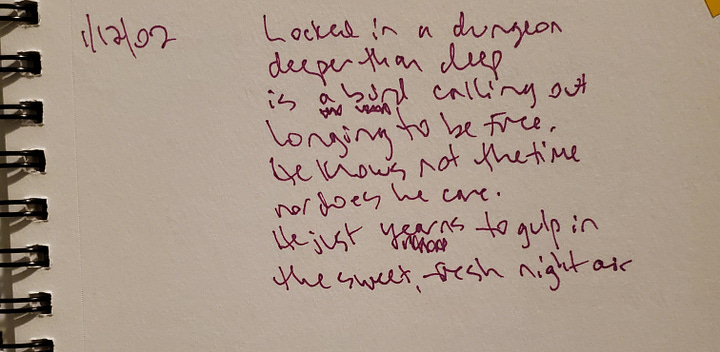 1/12/02
Locked in a dungeon
deeper than deep
is a bird calling out
longing to be free.
He knows not the time
nor does he care.
He just yearns to gulp in
the sweet, fresh night air